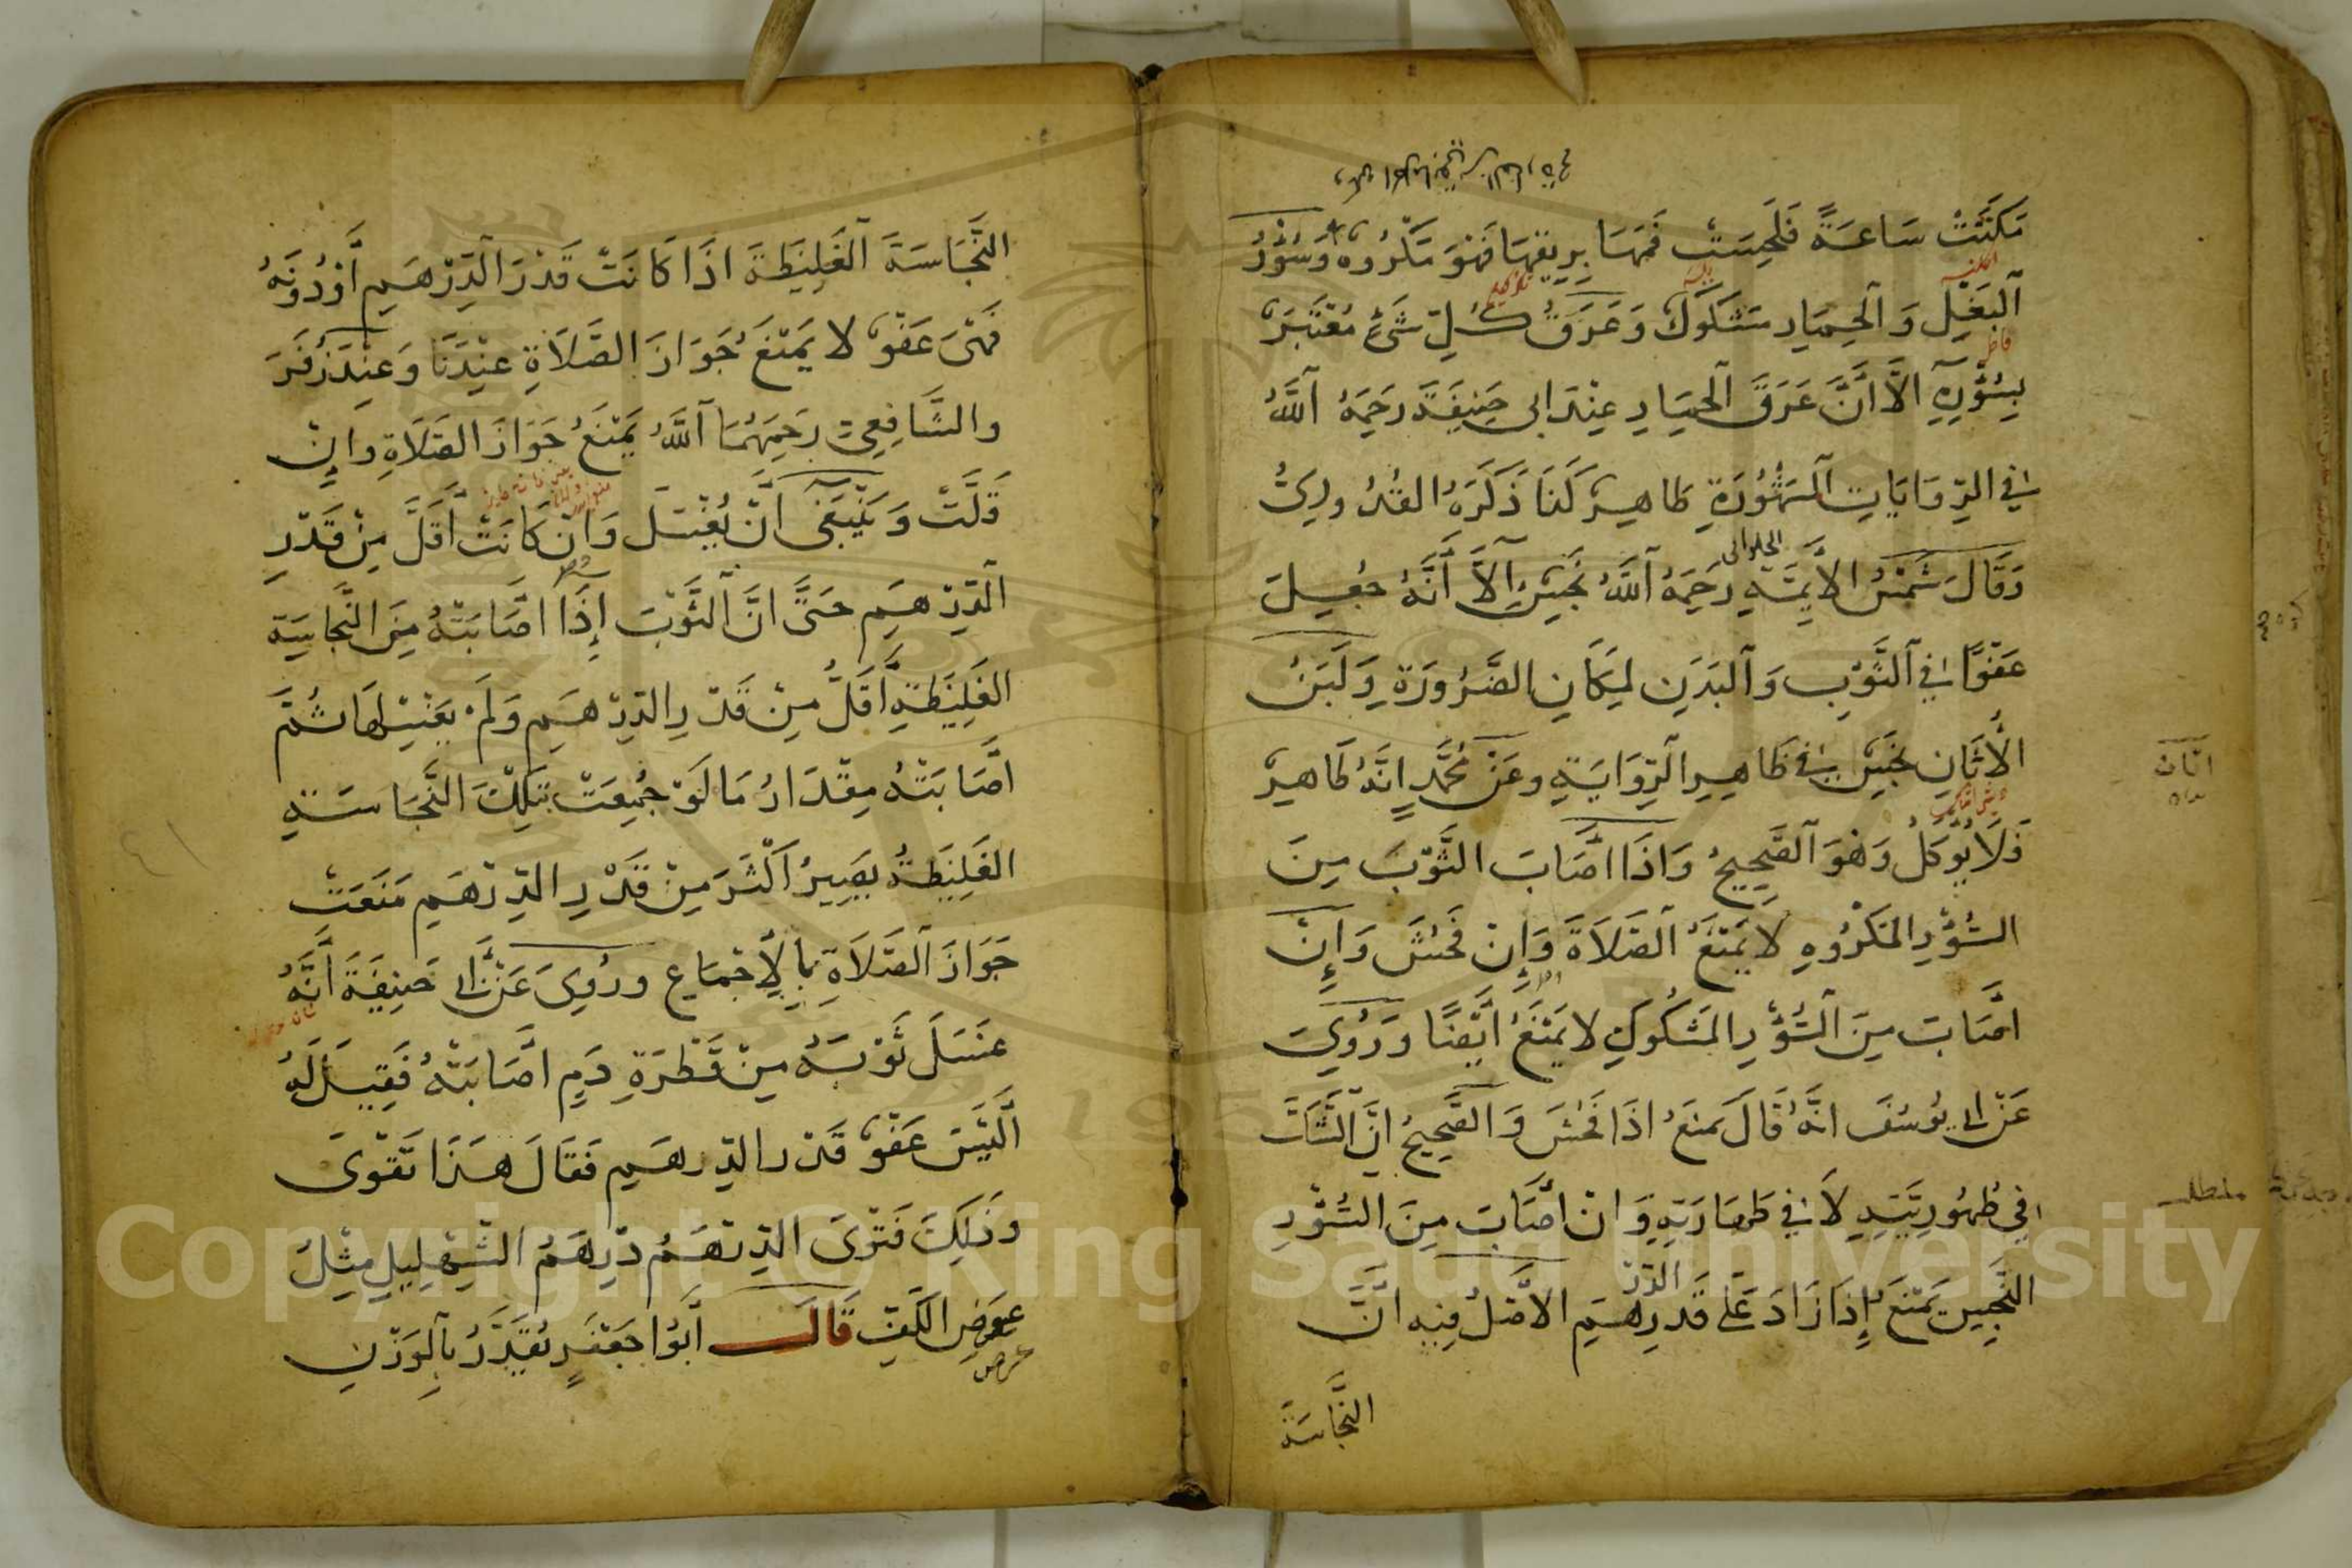 مَكَثَتْ سَاعَةً فَلَحِسَتْ فَمَهَا بِرِيقِهَا فَهُوَ مَكْرُوهٌ وَسُؤْرُ
الْبَغْلِ وَالْحِمَارِ مَشْكُوكٌ وَعَرَقُ كُلِّ شَيْءٍ مُعْتَبَرٌ
بِسُؤْرِهِ اِلَّا أَنَّ عَرَقَ الْحِمَارِ عِنْدَ ابى حَنِيفَةَ رَحِمَهُ اللَّهُ
فِي الرِّوَايَاتِ الْمَشْهُورَةِ طَاهِرٌ كَذَا ذَكَرَهُ القُدُورِىُّ
وَقَالَ شَمْسُ الأَئِمَّةِ الحلوانى رَحِمَهُ اللَّهُ نَجَسٌ اِلَّا أَنَّهُ جُعِلَ
عَفْوًا فِي الثَّوْبِ وَالْبَدَنِ لِمَكَانِ الضَّرُورَةِ وَلَبَنُ
الْأَتَانِ نَجَسٌ فِي ظَاهِرِ الرِّوَايَةِ وعَنْ مُحَمَّدٍ اِنَّهُ طَاهِرٌ
فَلَا يُؤْكَلُ وَهُوَ الصَّحِيحُ وَاذَا اَصَابَ الثَّوْبَ مِنَ
السُّؤْرِ المَكْرُوهِ لا يَمْنَعُ الصَّلَاةَ وَإِنْ فَحُشَ وَإِنْ
اَصَابَ مِنَ السُّؤْرِ المَشْكُوكِ لا يَمْنَعُ اَيْضًا وَرُوِيَ
عَنْ ابى يُوسُفَ انَّهُ قَالَ يَمنَعُ اذَا فَحُشَ وَالصَّحِيحُ انَّ الشَّكَّ
فِي طُهُورِيَّتِهِ لَا فِي طَهَارَتِهِ وَانْ أَصَابَ مِنَ السُّؤْرِ
النَّجِسِ يَمْنَعُ إِذَا زَادَ عَلَى قَدرِ الدِّرْهَمِ الاَصْلُ فِيهِ اَنَّ
النَّجَاسَةَ
اتان
مطلب
النَّجَاسَةَ الْغَلِيظَةَ اذَا كَانَتْ قَدْرَ الدِّرْهَمِ أَوْدُونَهُ
فَهِيَ عَفْوٌ لا يَمْنَعُ جَوَازَ الصَّلَاةِ عِنْدَنَا وَعِنْدَ زُفَرَ
والشَّافِعِىِّ رَحِمَهُمَا اللَّهُ يَمْنَعُ جَوَازَ الصَّلَاةِ وَاِنْ
قَلَّتْ وَيَنْبَغِى اَنْ يُغْسَلَ وَاِنْ كَانَتْ اَقَلَّ مِنْ قَدْرِ
الدِّرْهَمِ حَتَّى انَّ الثَّوْبَ إِذَا اَصَابَتْهُ مِنَ النَّجَاسَةِ
الغَلِيظَةِ اَقَلَّ مِنْ قَدْرِ الدِّرْهَمِ وَلَمْ يَغْسِلْهَا ثُمَّ
اَصَابَتْهُ مِقْدَارُ مَا لَوْ جُمِعَتْ بِتِلْكَ النَّجَاسَةِ
الغَلِيظَةُ يَصِيرُ اَكْثَرَ مِنْ قَدْرِ الدِّرْهَمِ مَنَعَتْ
جَوَازَ الصَّلَاةِ بِالْاِجْمَاعِ ورُوِىَ عَنْ ابى حَنِيفَةَ اَنَّهُ
غَسَلَ ثَوْبَهُ مِنْ قَطْرَةِ دَمٍ اَصَابَتْهُ فَقِيلَ لَهُ
اَلَيْسَ عَفْوٌ قَدْر الدِّرهَمِ فَقَالَ هَذَا تَقْوَىَ
وذَلِكَ فَتْوَىَ الدِّرْهَمُ دِرْهَمُ الشَّهْلِيلِ مِثْلُ
عِوَضِ الكَفِّ قَالَ اَبُوا جَعْفَرٍ يُقَدَّرُ بِالْوَزْنِ
عرض